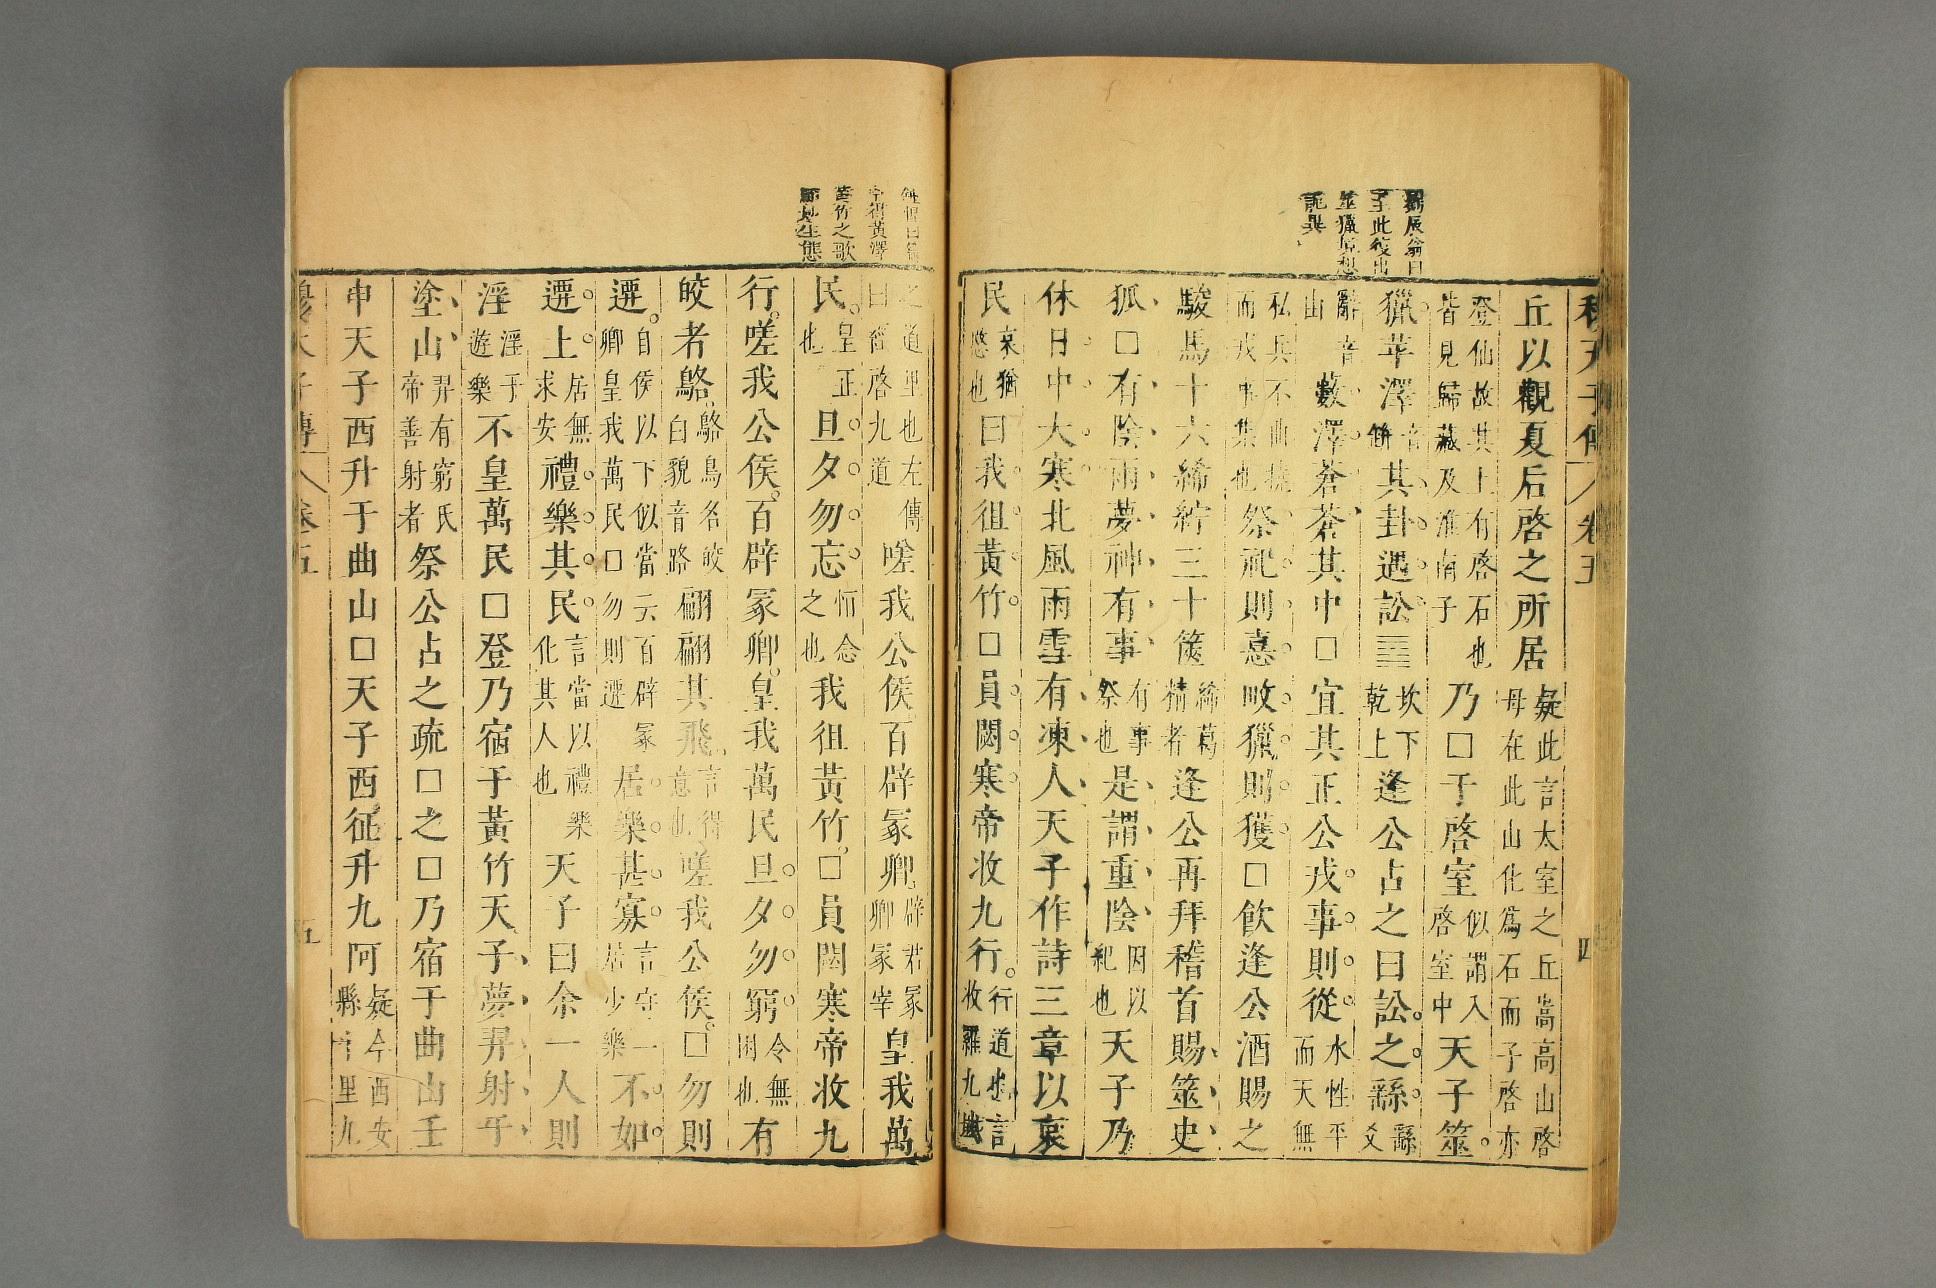 穆天子傳 卷五 四
丘以觀夏后啓之所居疑此言太室之丘嵩高山啓母在此山化爲石而子啓亦
登仙故其上有啓石也皆見歸藏及淮南子乃□于啓室似謂入啓室中天子筮
獵苹澤音缾其卦遇訟䷅坎下乾上逢公占之曰訟之繇繇爻
辭音由藪澤蒼蒼其中□宜其正公戎事則從水性平而天無
私兵不曲撓而戎事集也祭祀則憙畋獵則獲□飮逢公酒賜之
駿馬十六絺紵三十篋絺葛精者逢公再拜稽首賜筮史
狐□有陰雨夢神有事有事祭也是謂重陰因以紀也天子乃
休日中大寒北風雨雪有凍人天子作詩三章以哀
民哀猶愍也曰我徂黃竹□員閟寒帝收九行行道也言收羅九域
劉辰翁曰
至此復出
筮獵
記異
之道里也左傳曰經啓九道嗟我公侯百辟冢卿辟君冢卿冢宰皇我萬
民皇正也旦夕勿忘恒念之也我徂黃竹□員閟寒帝收九
行嗟我公侯百辟冢卿皇我萬民旦夕勿窮令無困也有
皎者鵅鵅鳥名皎白貌音路翩翩其飛言得意也嗟我公侯□勿則
遷自侯以下似當云百辟冢卿皇我萬民□勿則遷居樂甚寡言守一居少樂不如
遷上居無求安禮樂其民言當以禮樂化其人也天子曰余一人則
淫淫于遊樂不皇萬民□登乃宿于黃竹天子夢羿射于
塗山羿有窮氏帝善射者祭公占之疏□之□乃宿于曲山壬
申天子西升于曲山□天子西征升九阿疑今西安縣十里九
穆天子傳 卷五 五
字得黃澤
黃竹之歌
生態